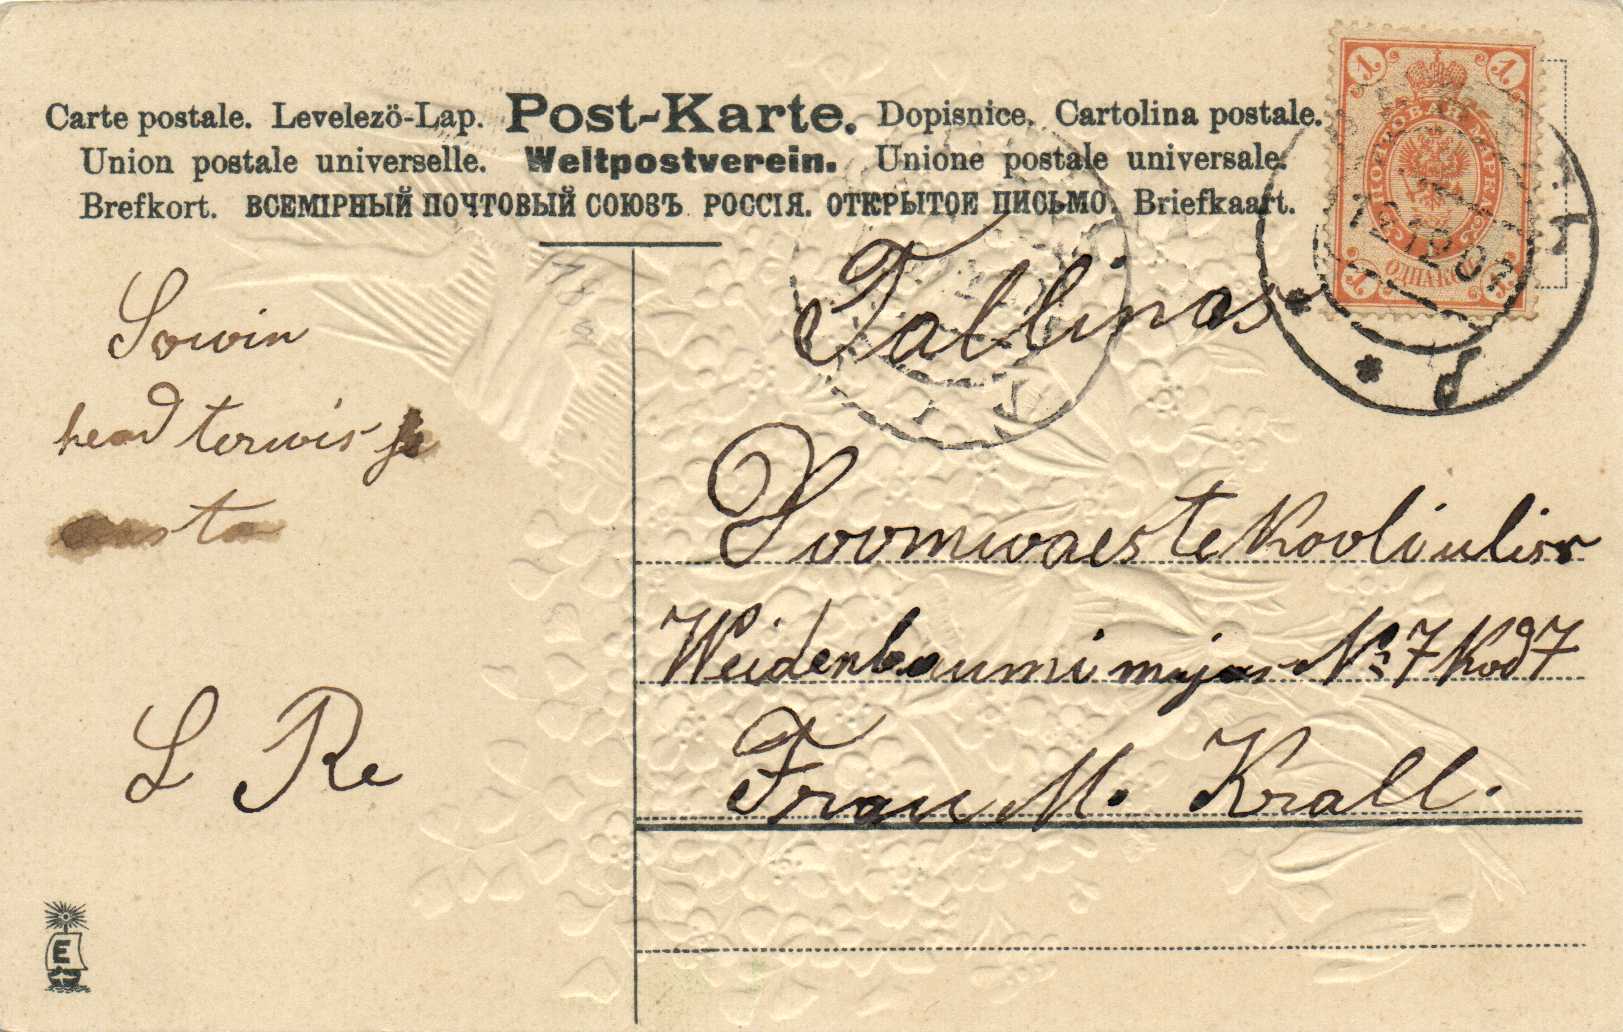 Carte postale. Levelezö-Lap. Post-Karte. Dopisnice. Cartolina postale.
Union postale universelle. Weltpostverein. Unione postale universale.
Brefkort. ВСЕМІРНЫЙ ПОЧТОВЫЙ СОЮЗЪ РОССІЯ. ОТКРЫТОЕ ПИСЬМО. Briefkaart.
1 1
ОДНА КОП
12 12 0
Tallinas
Sowin
head terwist ja
õnsta
L Re
Soowwaestekooli ulisr
Weidenbaumi majas № 7 Kod 7
Frau M. Krall.
E